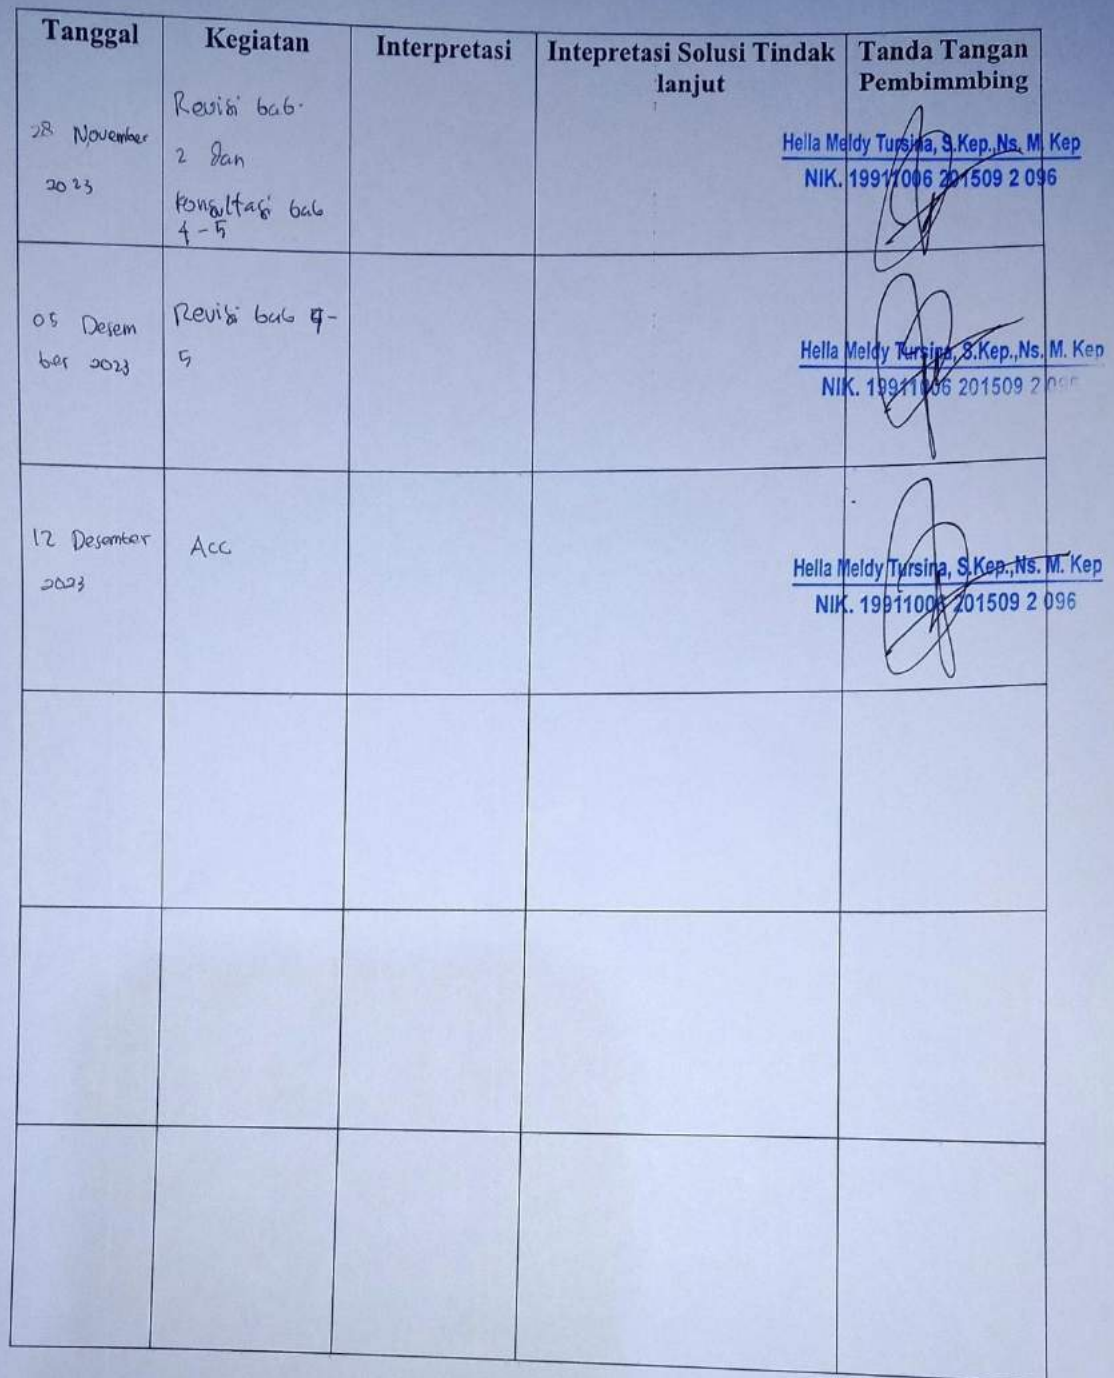 Tanggal
Kegiatan
Interpretasi
Intepretasi Solusi Tindak
lanjut
Tanda Tangan
Pembimmbing
28 November
2023
Revisi bab
2 dan
konsultasi bab
4-5
Hella Meldy Tursina, S.Kep.,Ns. M. Kep
NIK. 19911006 201509 2 096
05 Desem
ber 2023
Revisi bab 4-
5
Hella Meldy Tursina, S.Kep.,Ns. M. Kep
NIK. 19911006 201509 2 096
12 Desember
2023
Acc
Hella Meldy Tursina, S.Kep.,Ns. M. Kep
NIK. 19911006 201509 2 096